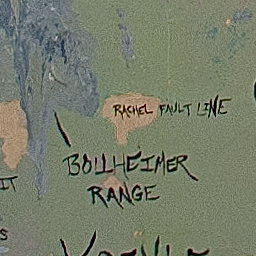 RACHEL FAULT LINE
BOLLHEIMER
RANGE
IT
S